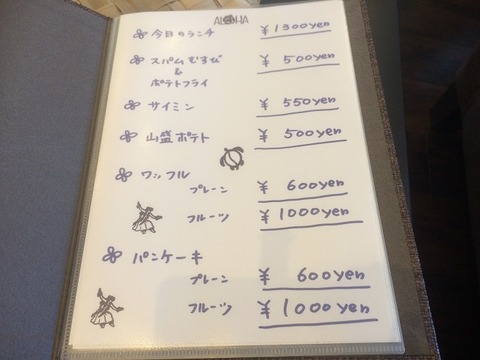 ALOHA
今日のランチ ¥1300yen
スパムむすび ¥500yen
&
ポテトフライ
サイミン ¥550yen
山盛ポテト ¥500yen
ワッフル
プレーン ¥600yen
フルーツ ¥1000yen
パンケーキ
プレーン ¥600yen
フルーツ ¥1000yen